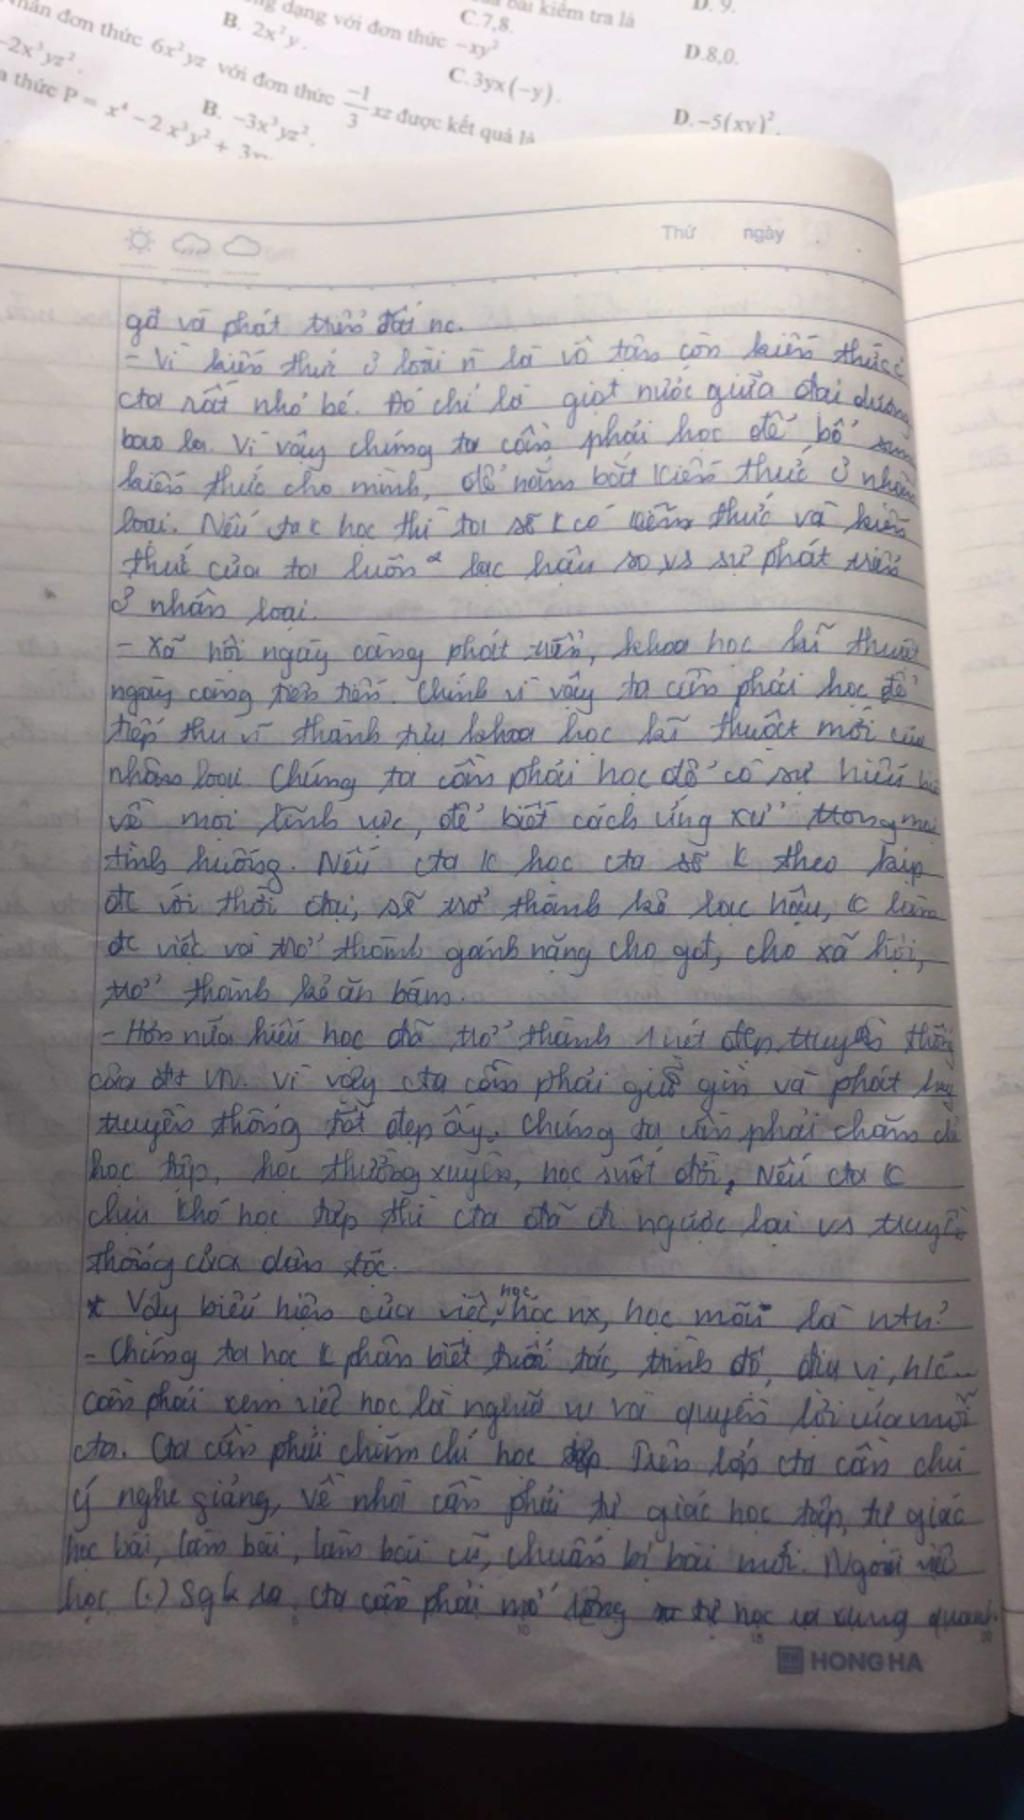 bài kiểm tra là
D. 9.
C.7,8.
D.8,0.
dạng với đơn thức -xy²
B. 2x²y.
C.3yx(-y).
D.-5(xy)².
đơn thức 6x²yz với đơn thức -1/3 xz được kết quả là
-2x³yz².
B. -3x³yz².
thức P = x⁴ - 2x³y² + 3
Thứ ngày
gđ và phát triển đất nc.
- Vì kiến thức ở loài n là vô tận còn kiến thức
cta rất nhỏ bé. Đó chỉ là giọt nước giữa đại dương
bao la. Vì vậy chúng ta cần phải học để bổ sung
kiến thức cho mình, để nắm bắt kiến thức ở nhân
loại. Nếu ta k học thì ta sẽ k có kiến thức và kiến
thức của ta luôn lạc hậu so vs sự phát triển
ở nhân loại.
- Xã hội ngày càng phát triển, khoa học kĩ thuật
ngày càng tiên tiến. Chính vì vậy ta cần phải học để
tiếp thu thành tựu khoa học kĩ thuật mới của
nhân loại. Chúng ta cần phải học để có sự hiểu biết
về mọi lĩnh vực, để biết cách ứng xử trong mọi
tình huống. Nếu cta k học cta sẽ k theo kịp
đc với thời đại, sẽ trở thành kẻ lạc hậu, k làm
đc việc và trở thành gánh nặng cho gđ, cho xã hội,
trở thành kẻ ăn bám.
- Hơn nữa hiếu học đã trở thành 1 nét đẹp truyền thống
của dt VN. Vì vậy cta cần phải giữ gìn và phát huy
truyền thống tốt đẹp ấy. Chúng ta cần phải chăm chỉ
học tập, học thường xuyên, học suốt đời. Nếu cta k
chịu khó học tập thì cta đã đi ngược lại vs truyền
thống của dân tộc.
* Vậy biểu hiện của việc học, học nx, học mãi là ntn?
- Chúng ta học k phân biệt tuổi tác, trình độ, địa vị,
cần phải xem việc học là nghĩa vụ và quyền lợi của mỗi
cta. Cta cần phải chăm chỉ học tập. Trên lớp cta cần chú
ý nghe giảng, về nhà cần phải tự giác học tập, tự giác
học bài, làm bài, làm bài cũ, chuẩn bị bài mới. Ngoài việc
học (.) Sgk ra, cta cần phải mở rộng tự học ra xung quanh.
HONG HA